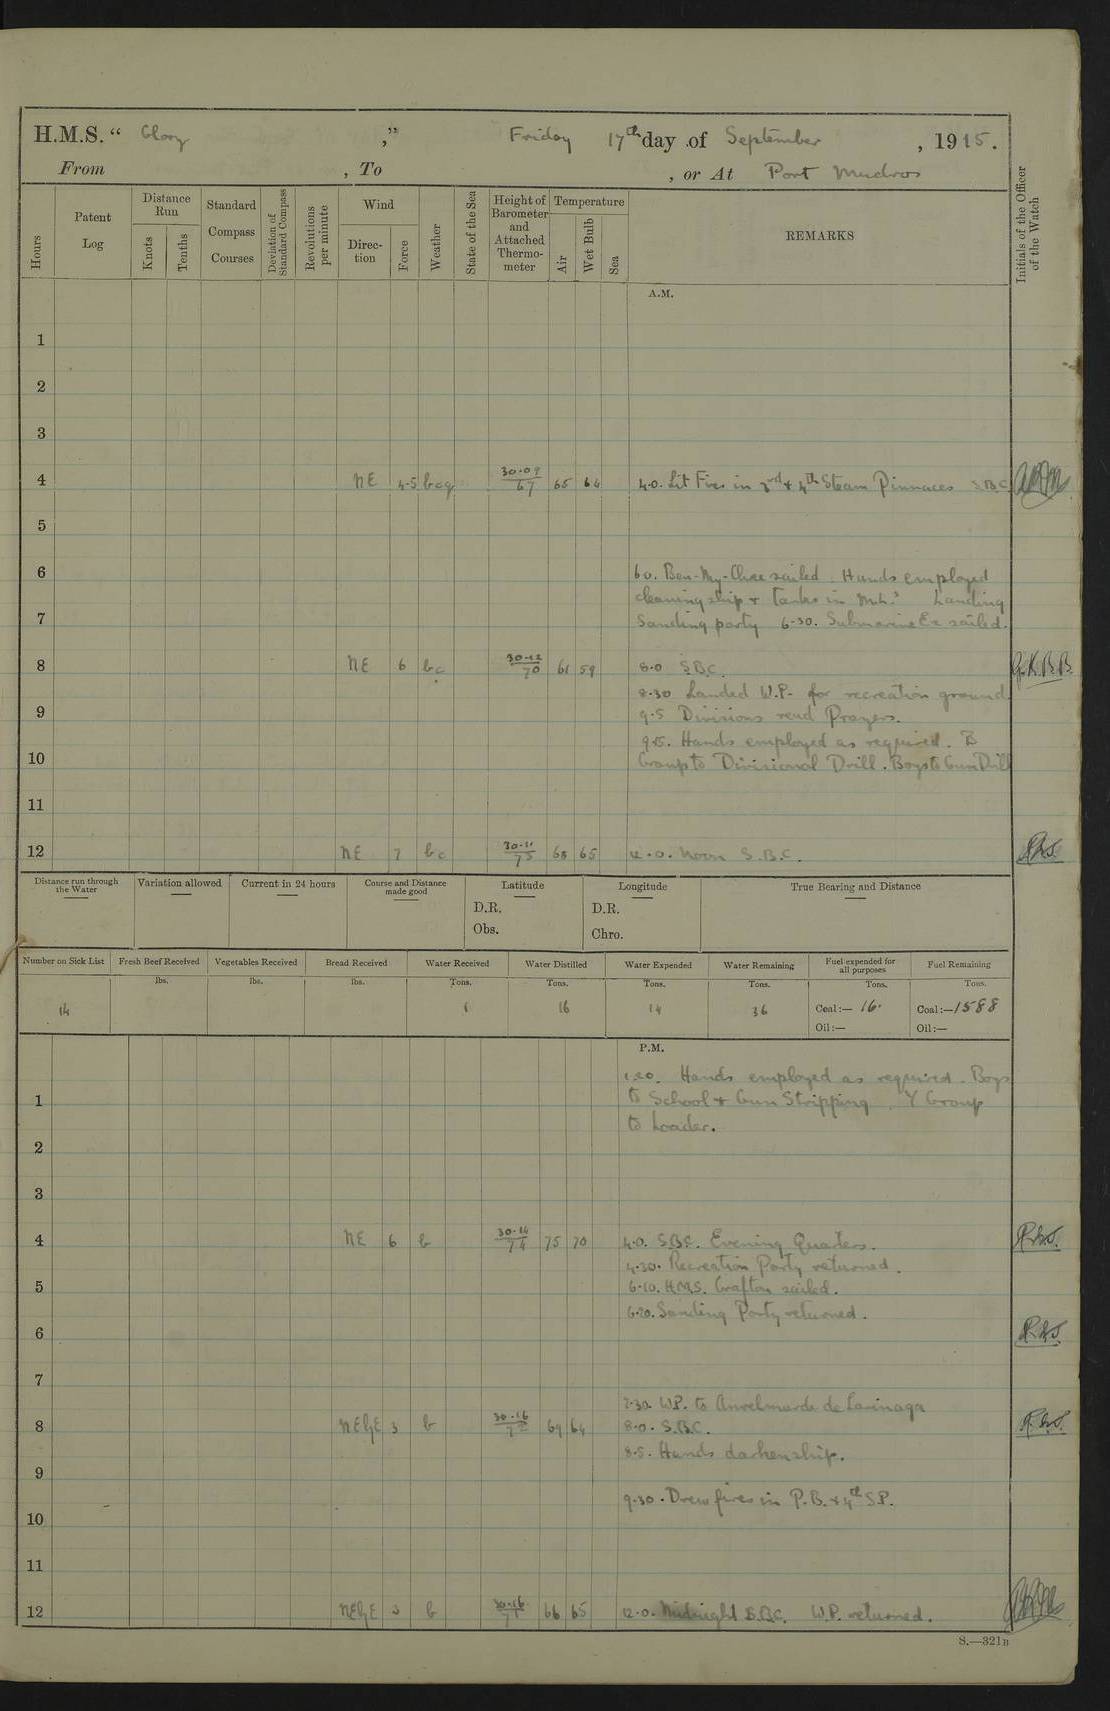 H.M.S. “ Glory ,” Friday 17th day of September , 1915.
From , To , or At Port Mudros
Hours
Patent Log
Distance Run
Knots
Tenths
Standard Compass Courses
Deviation of Standard Compass
Revolutions per minute
Wind
Direc-tion
Force
Weather
State of the Sea
Height of Barometer and Attached Thermo-meter
Temperature
Air
Wet Bulb
Sea
REMARKS
Initials of the Officer of the Watch
A.M.
1
2
3
4 NE 4-5 bcq 30·09 67 65 64 4·0. Lit Fires in 3rd & 4th Steam Pinnaces S.B.C.
5
6 6·0. Ben-My-Chree sailed. Hands employed
cleaning ship & tanks in Landing
7 Sanding party 6·30. Submarine sailed.
8 NE 6 bc 30·12 70 61 59 8·0 S.B.C. G.K.B.B.
8·30 Landed W.P. for recreation ground.
9 9·5 Divisions read Prayers.
9·15. Hands employed as required. B
10 Group to Divisional Drill. Boys to Gun Drill
11
12 NE 7 bc 30·11 75 68 65 12·0. Noon S.B.C.
Distance run through the Water
Variation allowed
Current in 24 hours
Course and Distance made good
Latitude
D.R.
Obs.
Longitude
D.R.
Chro.
True Bearing and Distance
Number on Sick List Fresh Beef Received Vegetables Received Bread Received Water Received Water Distilled Water Expended Water Remaining Fuel expended for all purposes Fuel Remaining
lbs. lbs. lbs. Tons. Tons. Tons. Tons. Tons. Tons.
14 16 14 36 Coal:— 16· Coal:—1588
Oil:— Oil:—
P.M.
1·20. Hands employed as required. Boys
1 to School & Gun Stripping. Y Group
to Loader.
2
3
4 NE 6 b 30·14 74 75 70 4·0. S.B.C. Evening Quarters.
4·30. Recreation Party returned.
5 6·10. H.M.S. Grafton sailed.
6·20. Sanding Party returned.
6
7
7·30. W.P. to Anselma de Larinaga
8 NEbE 3 b 30·16 72 69 64 8·0. S.B.C.
8·5. Hands darken ship.
9
9·30. Drew fires in P.B. & 4th S.P.
10
11
12 NEbE 3 b 30·16 71 66 65 12·0. Midnight S.B.C. W.P. returned.
S.—321B